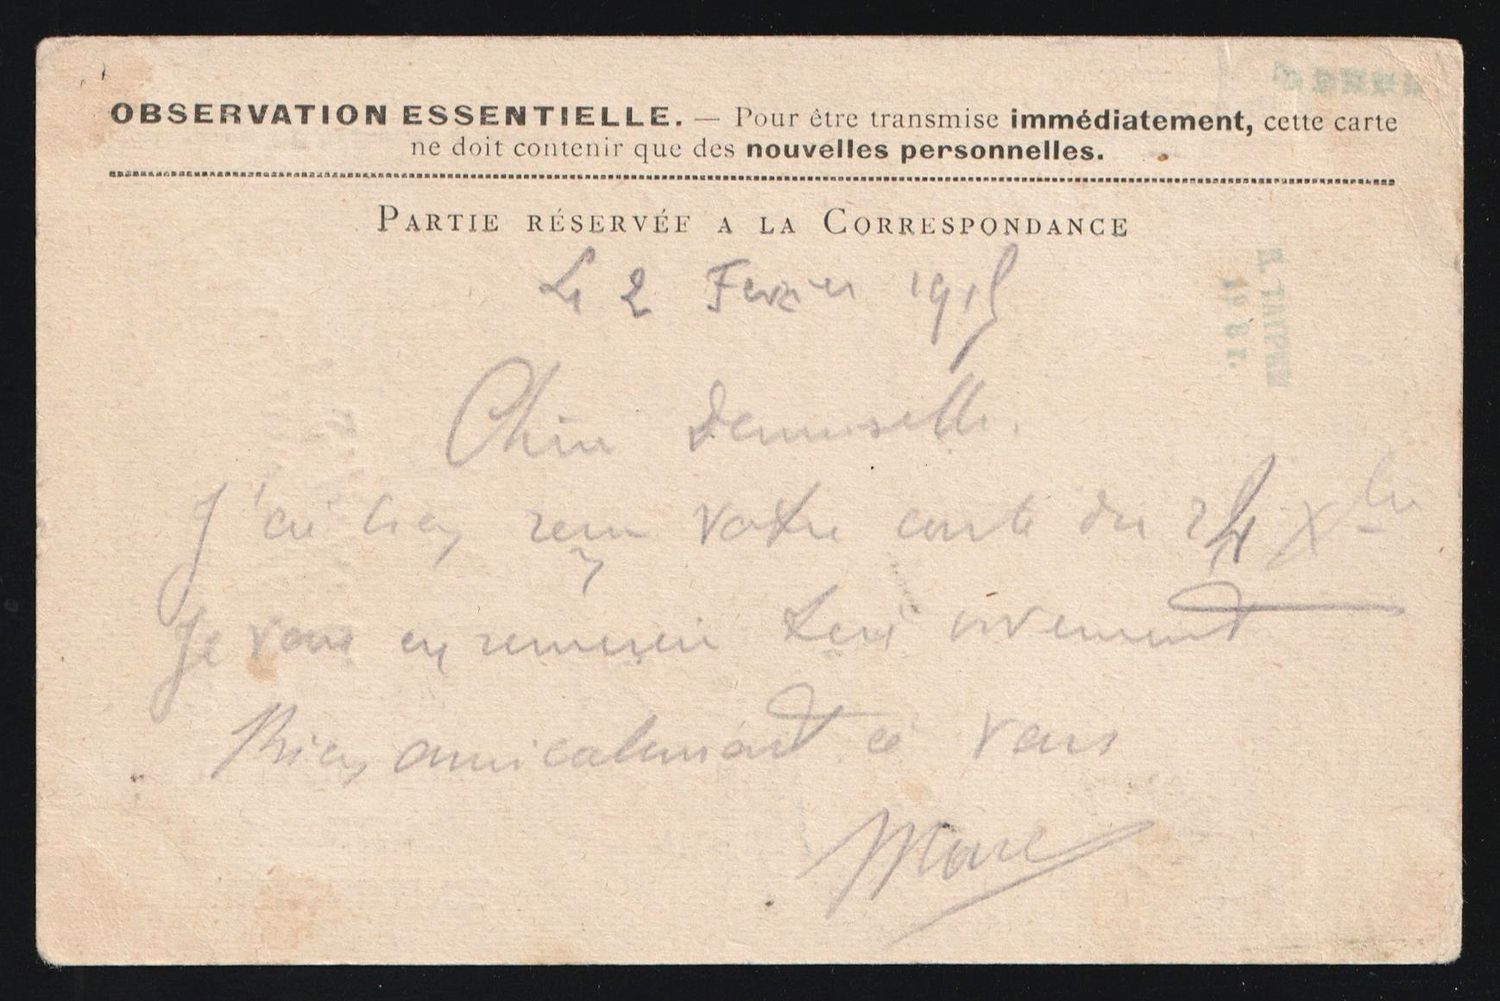 OBSERVATION ESSENTIELLE. — Pour être transmise immédiatement, cette carte
ne doit contenir que des nouvelles personnelles.
PARTIE RÉSERVÉE A LA CORRESPONDANCE
Le 2 Fevrier 1915
Chère Demoiselle.
J'ai bien reçu votre carte du 24 Xbre
Je vous en remercie vivement
Bien amicalement à vous
Marc